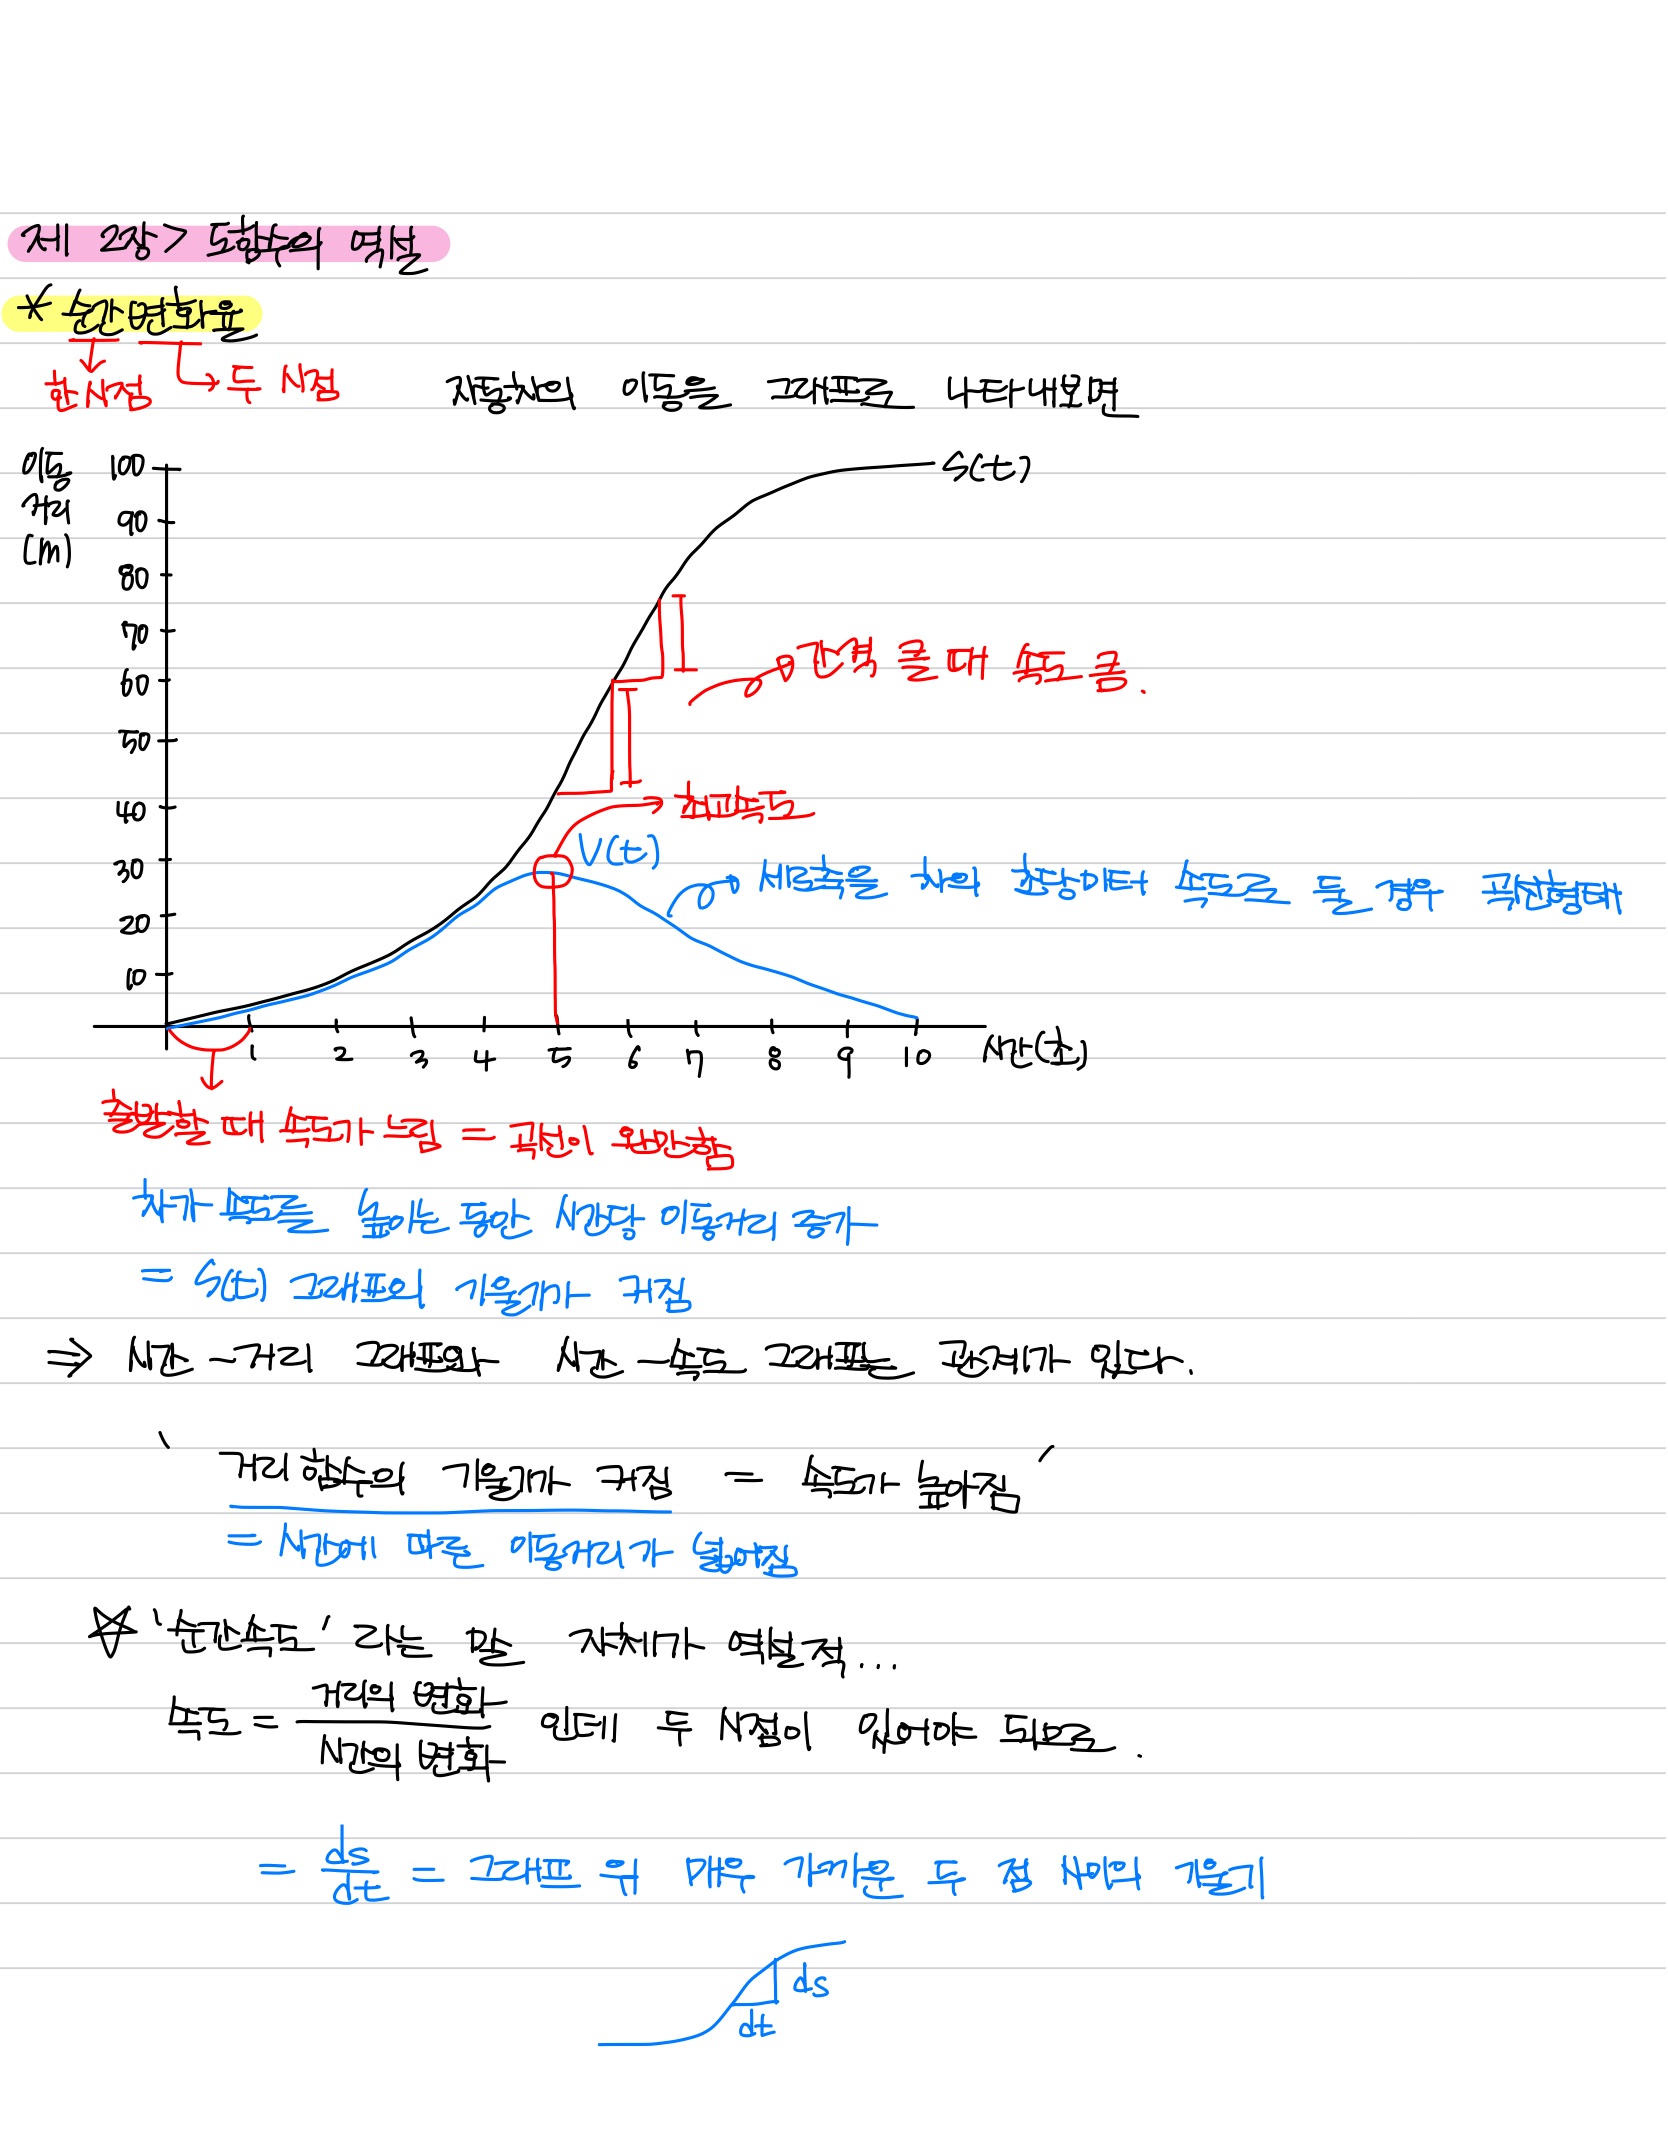 제 2장> 도함수의 역설
* 순간변화율
한시점 두 시점
자동차의 이동을 그래프로 나타내보면
이동
거리
(m)
100
90
80
70
60
50
40
30
20
10
S(t)
간격 클 때 속도 큼.
최고속도
V(t)
세로축을 차의 초당미터 속도로 둘 경우 곡선형태
1 2 3 4 5 6 7 8 9 10 시간(초)
출발할 때 속도가 느림 = 곡선이 완만함
차가 속도를 높이는 동안 시간당 이동거리 증가
= S(t) 그래프의 기울기가 커짐
⇒ 시간-거리 그래프와 시간-속도 그래프는 관계가 있다.
‵거리함수의 기울기가 커짐 = 속도가 높아짐′
= 시간에 따른 이동거리가 넓어짐
☆ '순간속도' 라는 말 자체가 역설적...
속도 = 거리의 변화 / 시간의 변화 인데 두 시점이 있어야 되므로.
= ds/dt = 그래프 위 매우 가까운 두 점 사이의 기울기
ds
dt